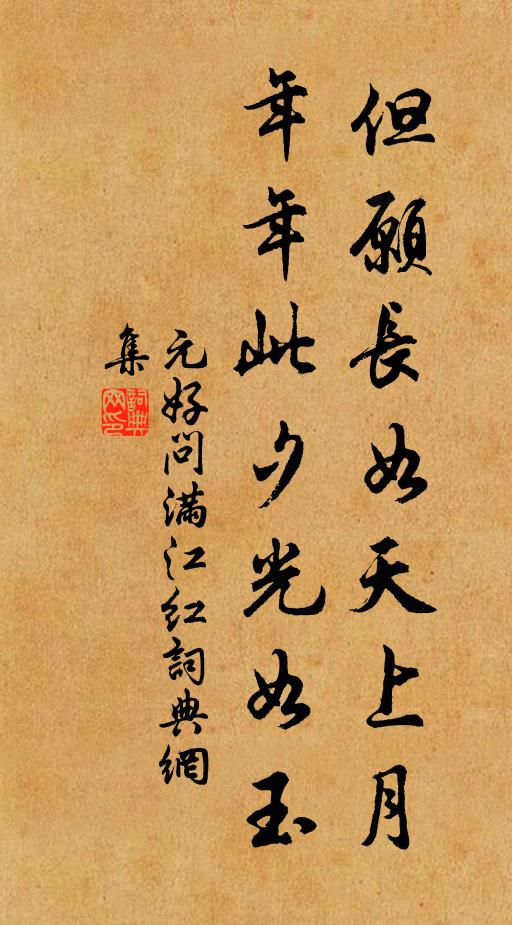 但願長如天上月
年年此夕光如玉
元好問滿江紅詞典網
集
詞典
网印